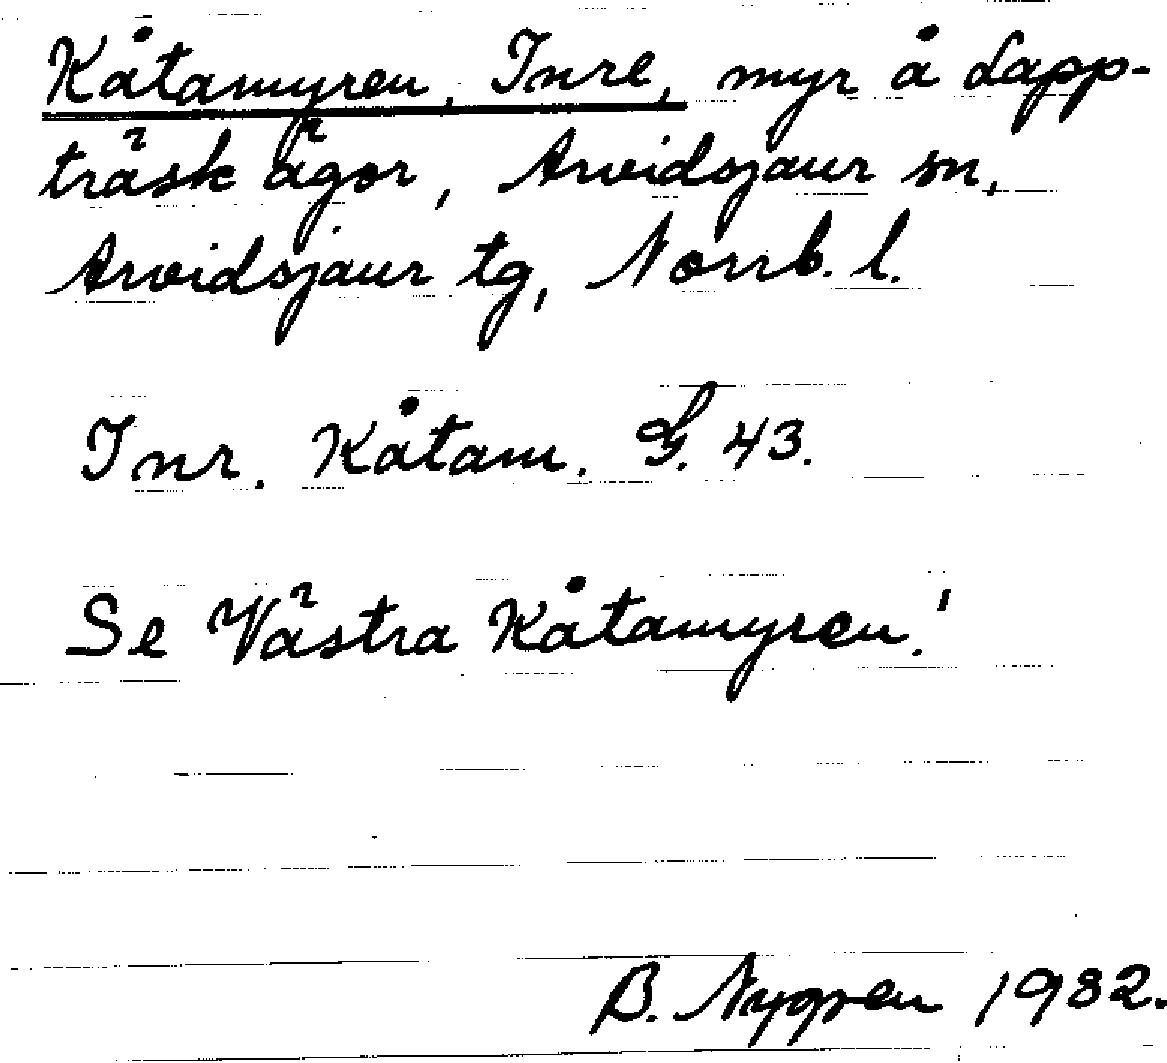 Kåtamyren, Inre, myr å Lapp-
träsk ägor, Arvidsjaur sn,
Arvidsjaur tg, Norrb. l.
Inr. Kåtam. G. 43.
Se Västra Kåtamyren!
B. Nygren 1982.